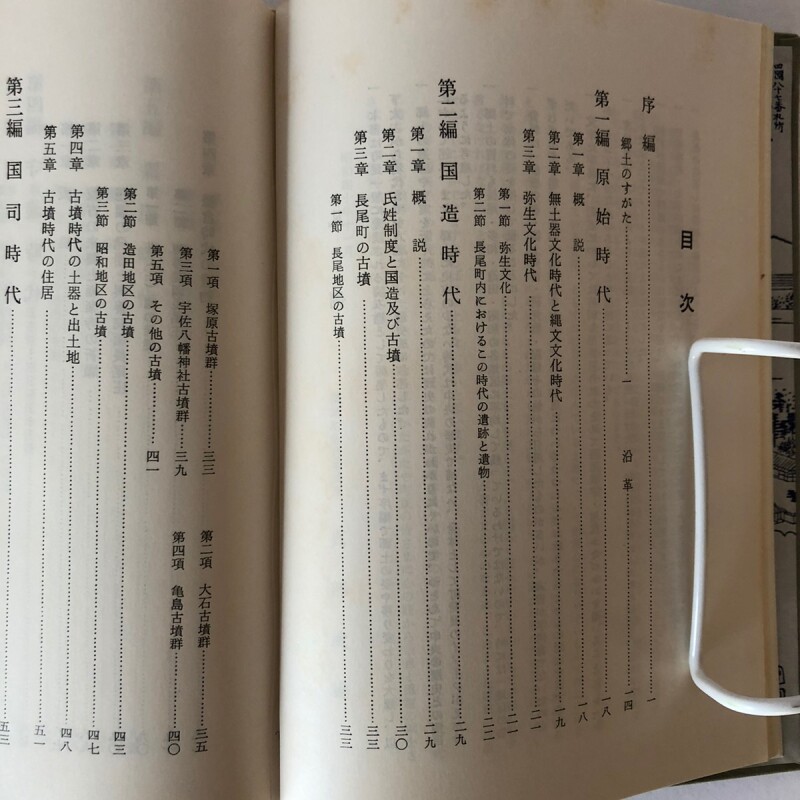 目次
序編……一
郷土のすがた……一 沿革……一四
第一編 原始時代……一八
第一章 概説……一八
第二章 無土器文化時代と縄文文化時代……一九
第三章 弥生文化時代……二一
第一節 弥生文化……二一
第二節 長尾町内におけるこの時代の遺跡と遺物……二二
第二編 国造時代……二九
第一章 概説……二九
第二章 氏姓制度と国造及び古墳……三〇
第三章 長尾町の古墳……三三
第一節 長尾地区の古墳……三三
第一項 塚原古墳群……三三 第二項 大石古墳群……三五
第三項 宇佐八幡神社古墳群……三九 第四項 亀島古墳群……四〇
第五項 その他の古墳……四一
第二節 造田地区の古墳……四三
第三節 昭和地区の古墳……四七
第四章 古墳時代の土器と出土地……四八
第五章 古墳時代の住居……五一
第三編 国司時代……五三